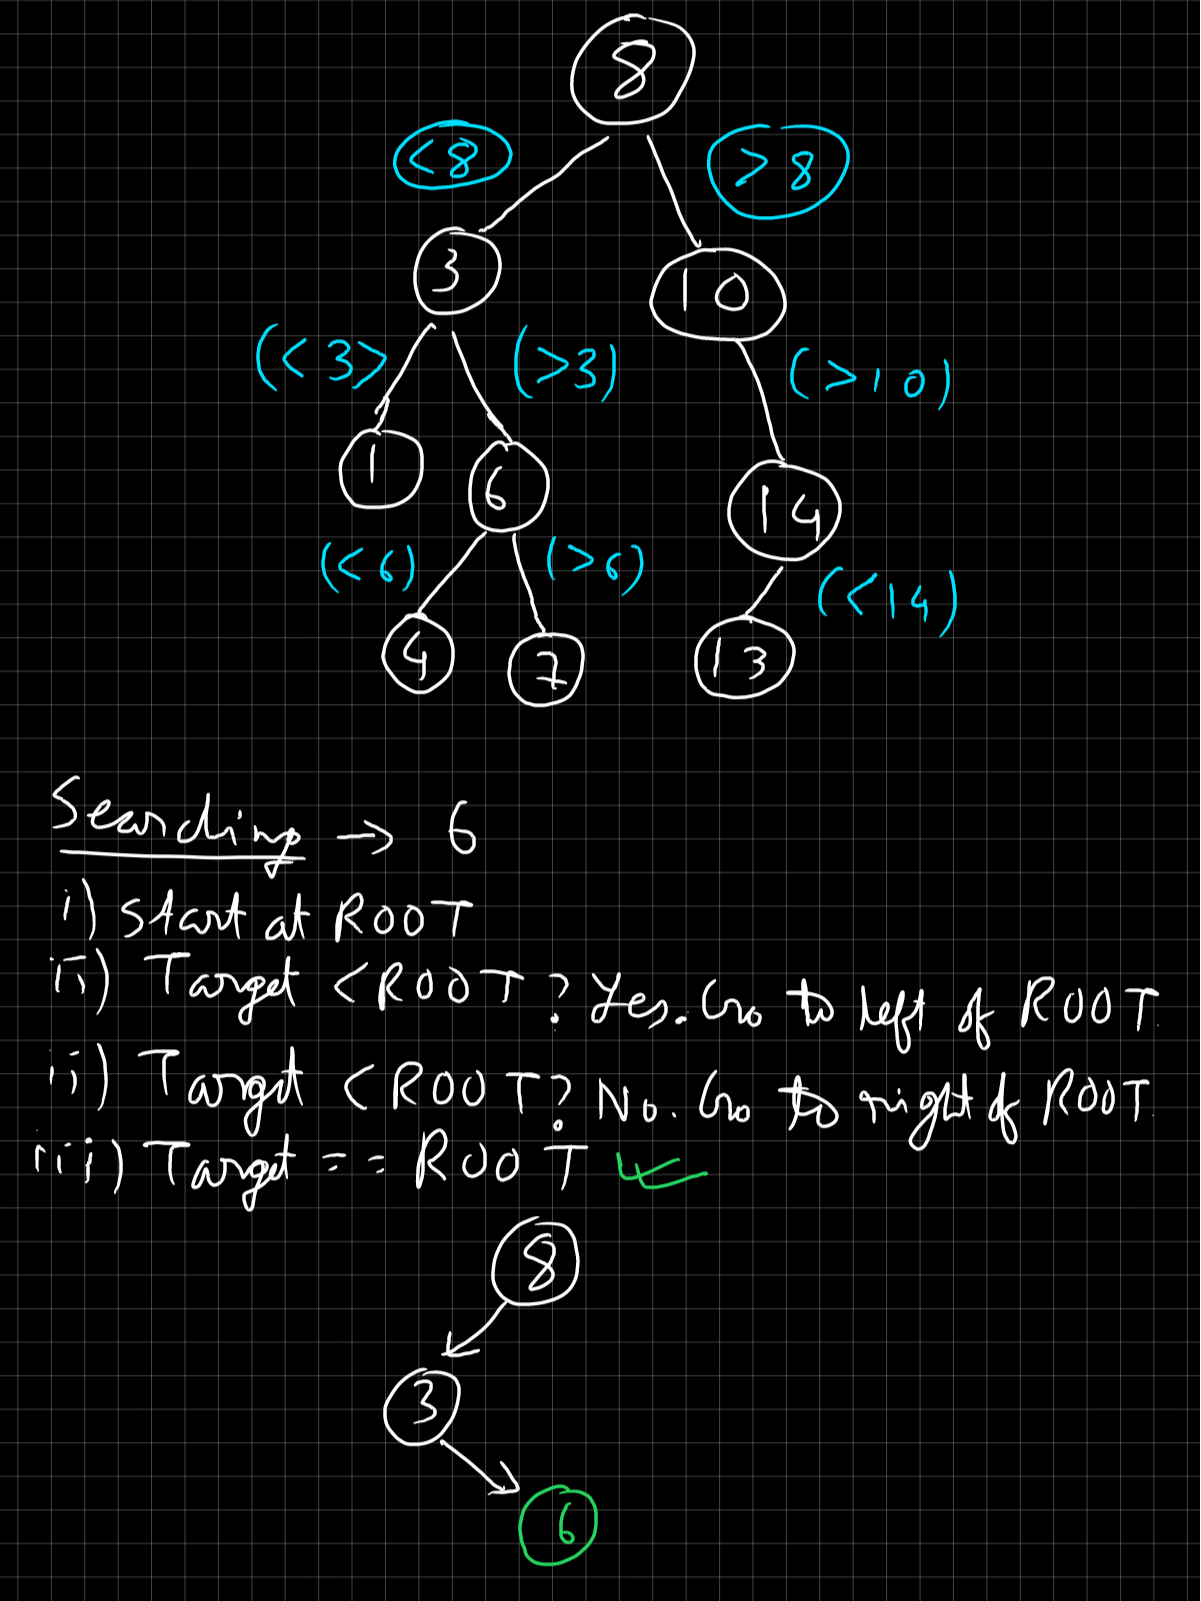 8
<8
>8
3
10
(<3>
(>3)
(>10)
1
6
14
(<6)
(>6)
(<14)
4
7
13
Searching → 6
i) Start at ROOT
ii) Target < ROOT? Yes. Go to left of ROOT
ii) Target < ROOT? No. Go to right of ROOT
iii) Target == ROOT
8
3
6